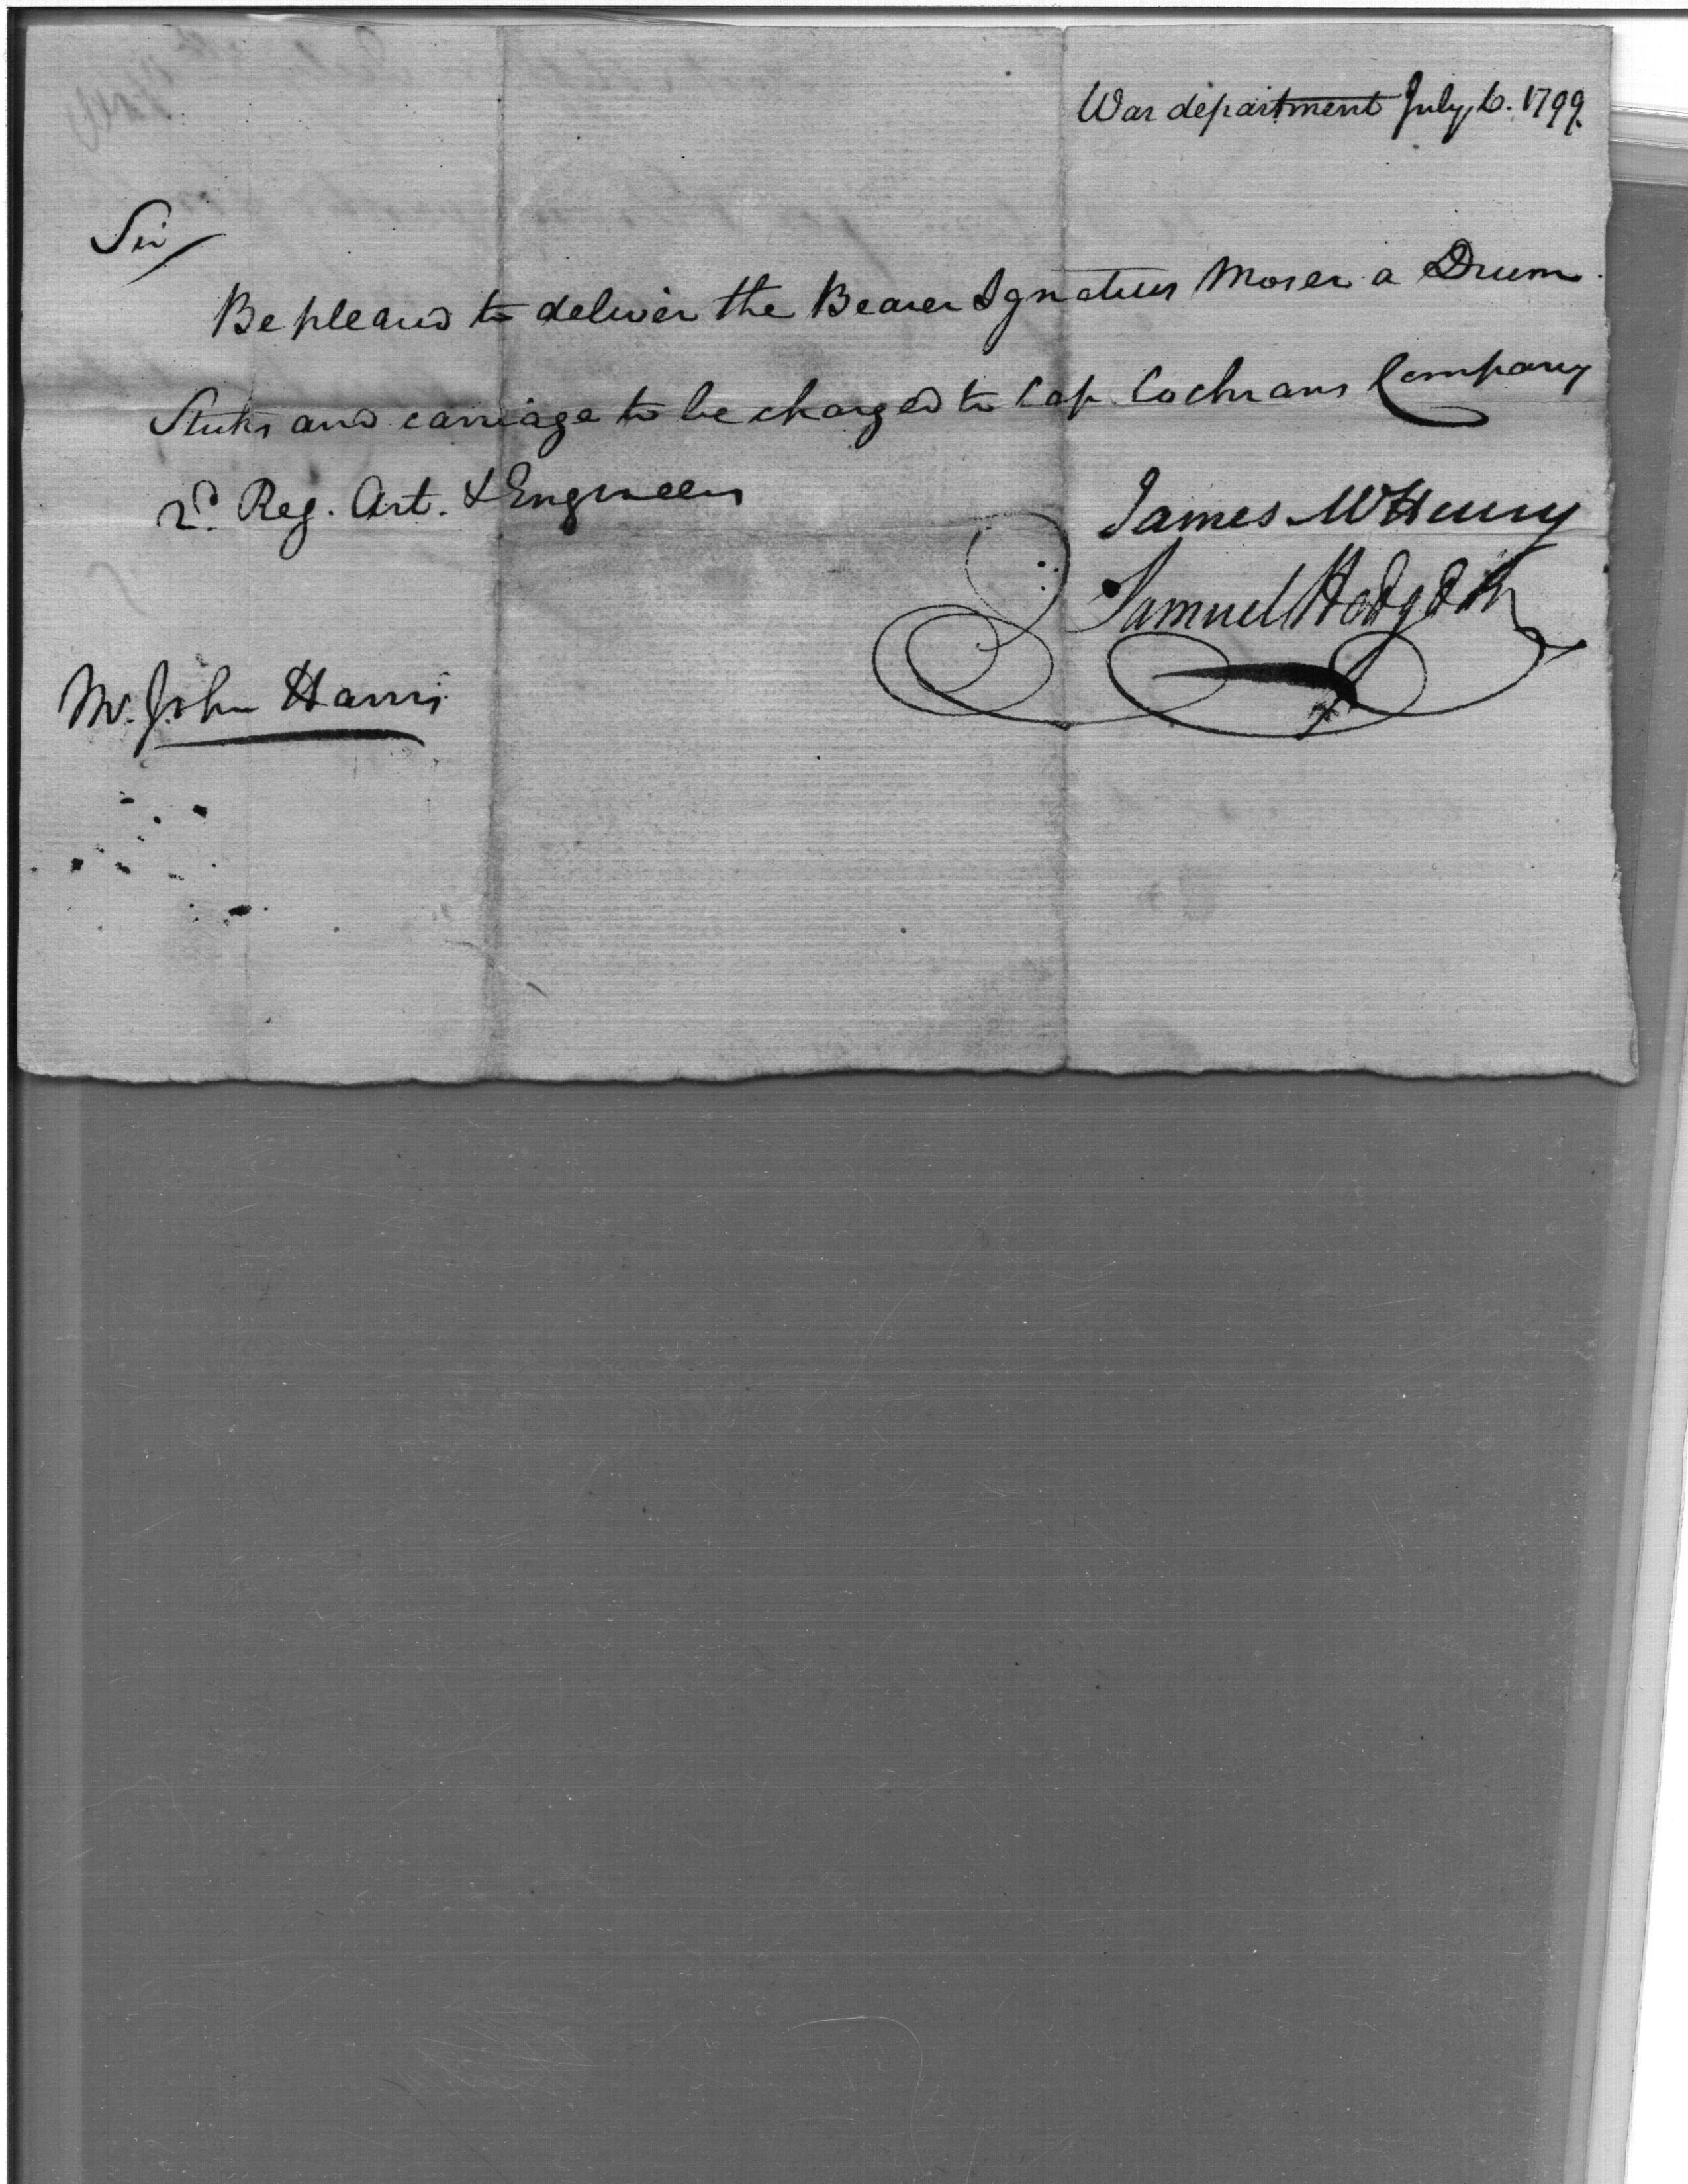 War department July, 6. 1799.
Sir/
Be pleased to deliver the Bearer Ignatius Moser a Drum
Sticks and carriage to be charged to Cap Cochrans Company
2d. Reg. Art. & Engineers
James McHenry
Samuel Hodgdon
Mr. John Harris